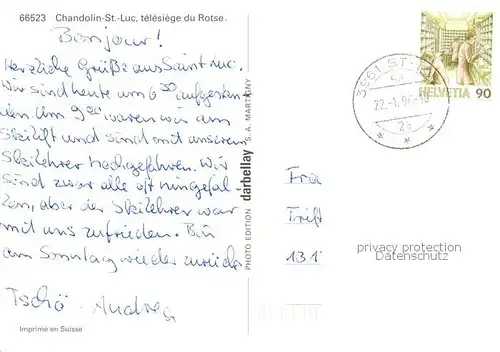 66523 Chandolin-St.-Luc, télésiège du Rotse.
Bonjour!
Herzliche Grüße aus Saint Luc.
Wir sind heute um 6 30 aufgestan-
den um 9 30 waren wir am
Skilift und sind mit unserem
Skilehrer hochgefahren. Wir
sind zwar alle oft hingefal-
len, aber der Skilehrer war
mit uns zufrieden. Bin
am Sonntag wieder zurück.
Tschö Andrea
Imprimé en Suisse
PHOTO EDITION darbellay S. A. MARTIGNY
HELVETIA 90
3961 ST-
22.-1.
Fra
Trift
131
privacy protection
Datenschutz